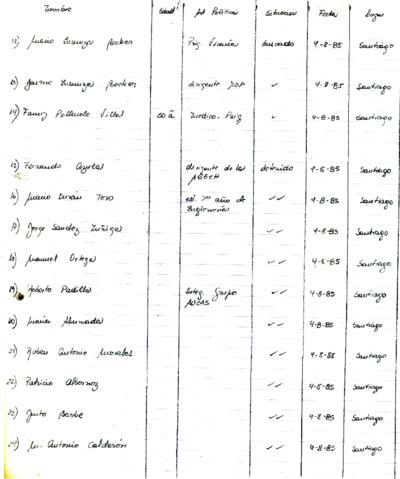 Nombre Edad Act Política Situación Fecha Lugar
12) Mario Insunza Becker Psiq. Vicaría buscado 4-8-85 Santiago
13) Jaime Insunza Becker dirigente MDP ✓ 4-8-85 Santiago
14) Fanny Pollarolo Villa 50 a Médico-Psiq ✓ 4-8-85 Santiago
15) Fernando dirigente de la detenido 4-8-85 Santiago
AGECH
16) Mario Durán Toro est. año de ✓✓ 4-8-85 Santiago
Ingeniería
17) Jorge Sandez Zúñiga ✓✓ 4-8-85 Santiago
18) Manuel Ortega ✓✓ 4-8-85 Santiago
19) Roberto Padilla integ. Grupo ✓✓ 4-8-85 Santiago
20) Ahumada ✓✓ 4-8-85 Santiago
21) Ruben Antonio Morales ✓✓ 4-8-85 Santiago
22) Patricio Albornoz ✓✓ 4-8-85 Santiago
23) Justo ✓✓ 4-8-85 Santiago
24) M. Antonio Calderón ✓✓ 4-8-85 Santiago